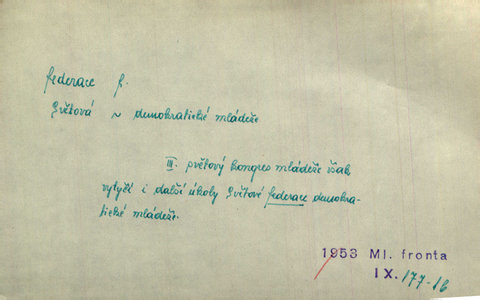 federace f.
Světová ~ demokratické mládeže
III. světový kongres mládeže však
vytyčí i další úkoly Světové federace demokra-
tické mládeže.
1953 Ml. fronta
IX. 177-1b